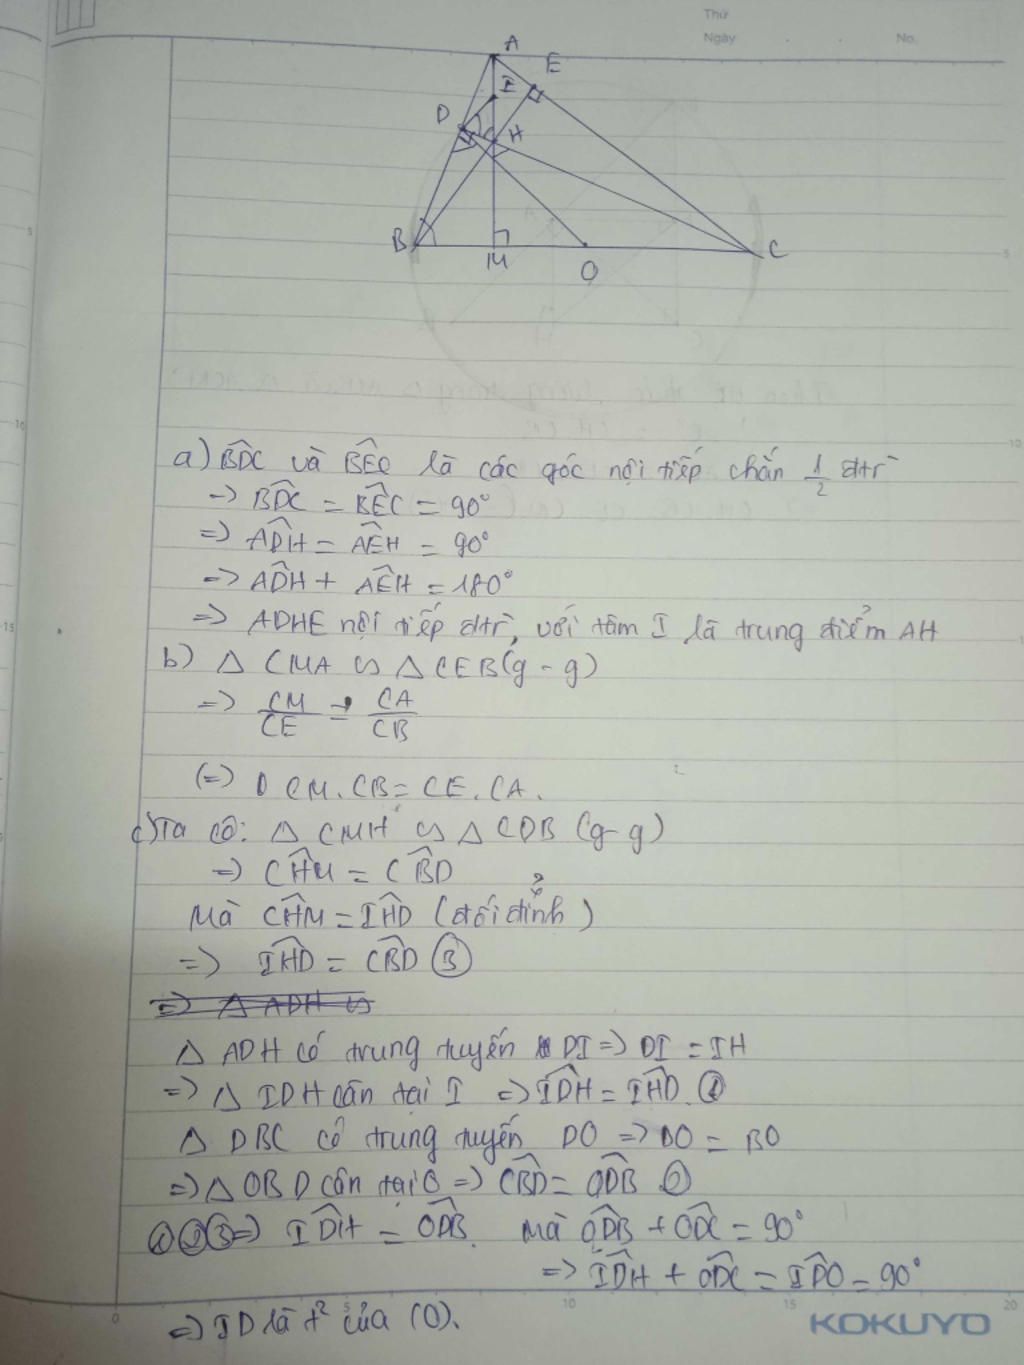 Thứ
Ngày . . No.
A
E
I
D
H
B
M
O
C
a) BDC và BEC là các góc nội tiếp chắn 1/2 đtr
=> BDC = BEC = 90°
=> ADH = AEH = 90°
=> ADH + AEH = 180°
=> ADHE nội tiếp đtr, với tâm I là trung điểm AH
b) Δ CMA ∽ Δ CEB (g - g)
=> CM/CE = CA/CB
(=) CM. CB = CE. CA.
c) Ta có: Δ CMH ∽ Δ CDB (g - g)
=> CHM = CBD
Mà CHM = IHD (đối đỉnh)
=> IHD = CBD ③
=> Δ ADH ∽
Δ ADH có trung tuyến DI => DI = IH
=> Δ IDH cân tại I => IDH = IHD. ①
Δ DBC có trung tuyến DO => DO = BO
=> Δ OBD cân tại O => CBD = ODB ②
①②③ => IDH = ODB. Mà ODB + ODC = 90°
=> IDH + ODC = IDO = 90°
=> ID là t² của (O).
0 5 10 15 20
KOKUYO